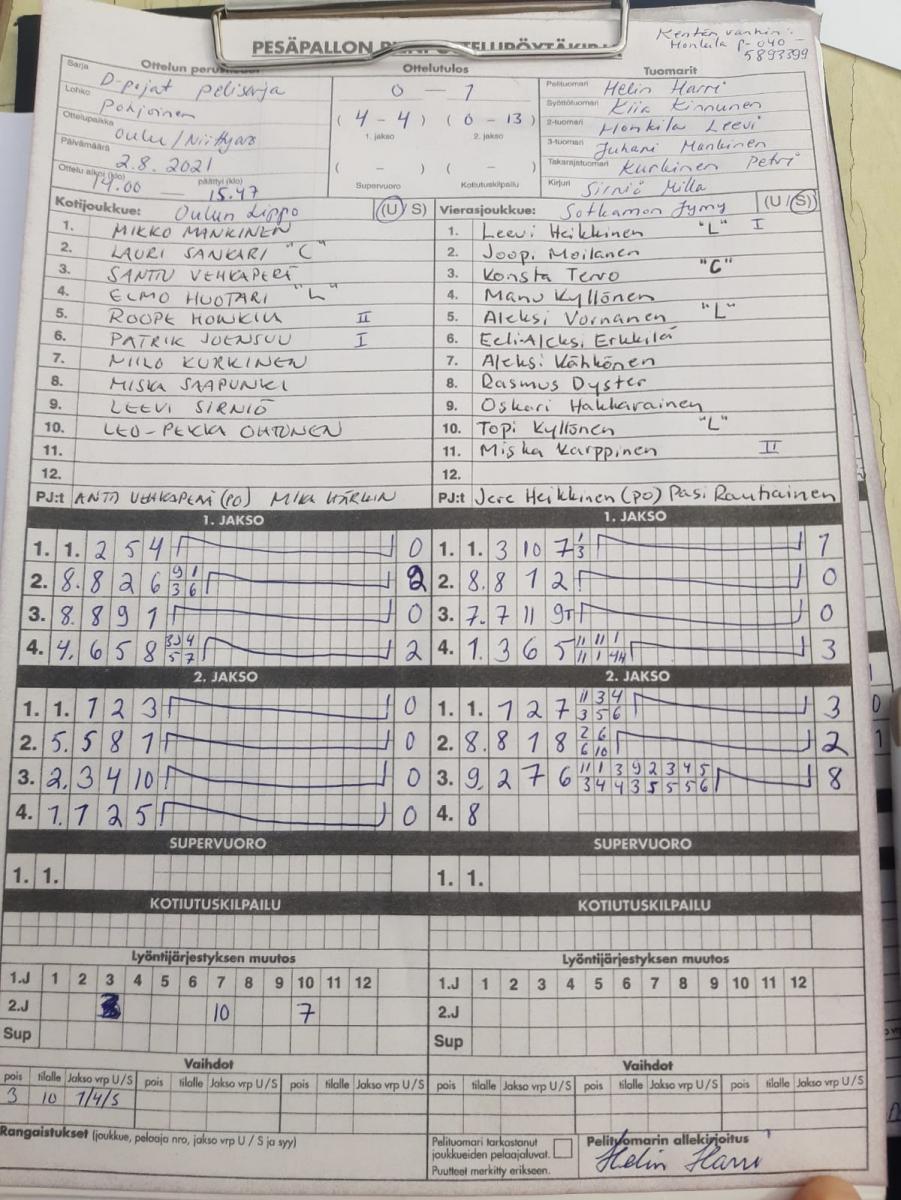 Kentän vanhin:
Honkila p-040-
5893399
PESÄPALLON
Ottelutulos
Tuomarit
Sarja D-pojat pelisarja
Lohko Pohjoinen
Ottelupaikka Oulu/Niittyaro
Päivämäärä 2.8.2021
Ottelu alkoi (klo) 14.00 — päättyi (klo) 15.47
0 — 1
(4 - 4) (0 - 13)
1. jakso 2. jakso
( - ) ( - )
Supervuoro Kotiutuskilpailu
Pelituomari Helin Harri
Syöttötuomari Kiia Kinnunen
2-tuomari Honkila Leevi
3-tuomari Juhani Mankinen
Takarajatuomari Kurkinen Petri
Kirjuri Sirniö Milla
Kotijoukkue: Oulun Lippo (U/S)
1. MIKKO MANKINEN
2. LAURI SANKARI "C"
3. SANTTU VEHKAPERÄ
4. ELMO HUOTARI "L"
5. ROOPE HONKILA II
6. PATRIK JOENSUU I
7. MIILO KURKINEN
8. MISKA SAAPUNKI
9. LEEVI SIRNIÖ
10. LEO-PEKKA OHTONEN
11.
12.
PJ:t ANTTI VEHKAPERÄ (PO) MIKA HÄRKIN
Vierasjoukkue: Sotkamon Jymy (U/S)
1. Leevi Heikkinen "L" I
2. Joopi Moilanen
3. Konsta Tervo "C"
4. Manu Kyllönen
5. Aleksi Vornanen "L"
6. Eeli-Aleksi Erkkilä
7. Aleksi Kähkönen
8. Rasmus Dyster
9. Oskari Hakkarainen
10. Topi Kyllönen "L"
11. Miska Karppinen II
12.
PJ:t Jere Heikkinen (PO) Pasi Rautiainen
1. JAKSO
1. 1. 2 5 4 0
2. 8. 8 2 6 9 1 2
3 6
3. 8. 8 9 1 0
4. 4. 6 5 8 4 2
5 7
2. JAKSO
1. 1. 1 2 3 0
2. 5. 5 8 1 0
3. 2. 3 4 10 0
4. 1. 1 2 5 0
SUPERVUORO
1. 1.
KOTIUTUSKILPAILU
1. JAKSO
1. 1. 3 10 7 1 1
3
2. 8. 8 1 2 0
3. 7. 7 11 9T 0
4. 1. 3 6 5 11 11 1 3
11 1
2. JAKSO
1. 1. 1 2 7 11 3 4 3
3 5 6
2. 8. 8 1 8 2 6 2
6 10
3. 9. 2 7 6 11 1 3 9 2 3 4 5 8
3 4 4 3 5 5 5 6
4. 8
SUPERVUORO
1. 1.
KOTIUTUSKILPAILU
Lyöntijärjestyksen muutos
1.J 1 2 3 4 5 6 7 8 9 10 11 12
2.J 10 7
Sup
Vaihdot
pois tilalle Jakso vrp U/S pois tilalle Jakso vrp U/S pois tilalle Jakso vrp U/S
3 10 1/4/S
Lyöntijärjestyksen muutos
1.J 1 2 3 4 5 6 7 8 9 10 11 12
2.J
Sup
Vaihdot
pois tilalle Jakso vrp U/S pois tilalle Jakso vrp U/S pois tilalle Jakso vrp U/S
Rangaistukset (joukkue, pelaaja nro, jakso vrp U / S ja syy)
Pelituomari tarkastanut
joukkueiden pelaajaluvat.
Puutteet merkitty erikseen.
Pelituomarin allekirjoitus
Helin Harri